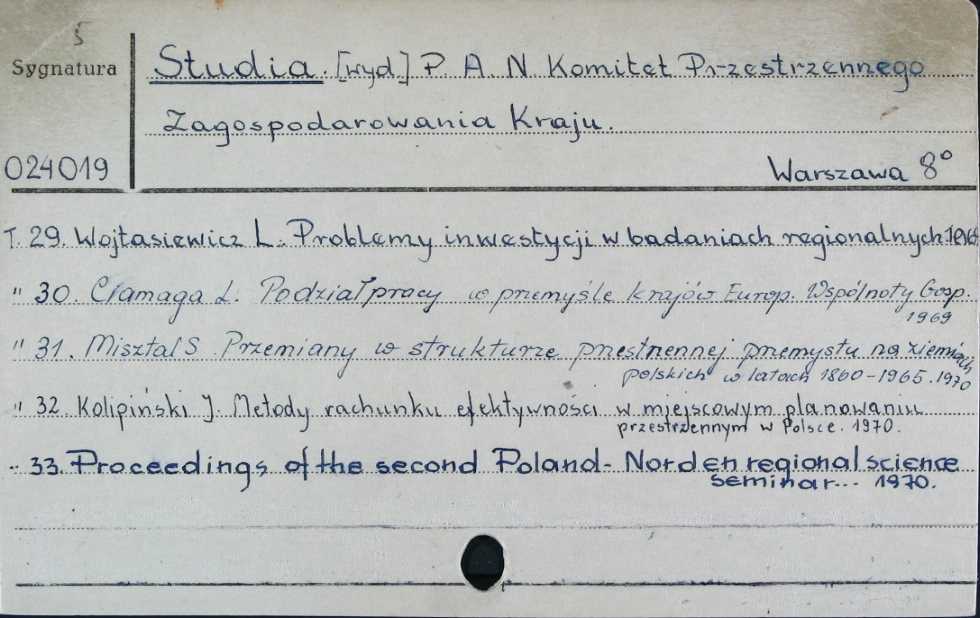 5
Sygnatura
Studia. [wyd.] P. A. N. Komitet Przestrzennego
Zagospodarowania Kraju.
024019
Warszawa 8°
T. 29. Wojtasiewicz L. Problemy inwestycji w badaniach regionalnych.
" 30. Ciamaga L. Podział pracy w przemyśle krajów Europ. Wspólnoty Gosp.
1969
" 31. Misztal S. Przemiany w strukturze przestrzennej przemysłu na ziemiach
polskich w latach 1860-1965. 1970
" 32. Kolipiński J. Metody rachunku efektywności w miejscowym planowaniu
przestrzennym w Polsce. 1970.
" 33. Proceedings of the second Poland-Norden regional science
seminar... 1970.